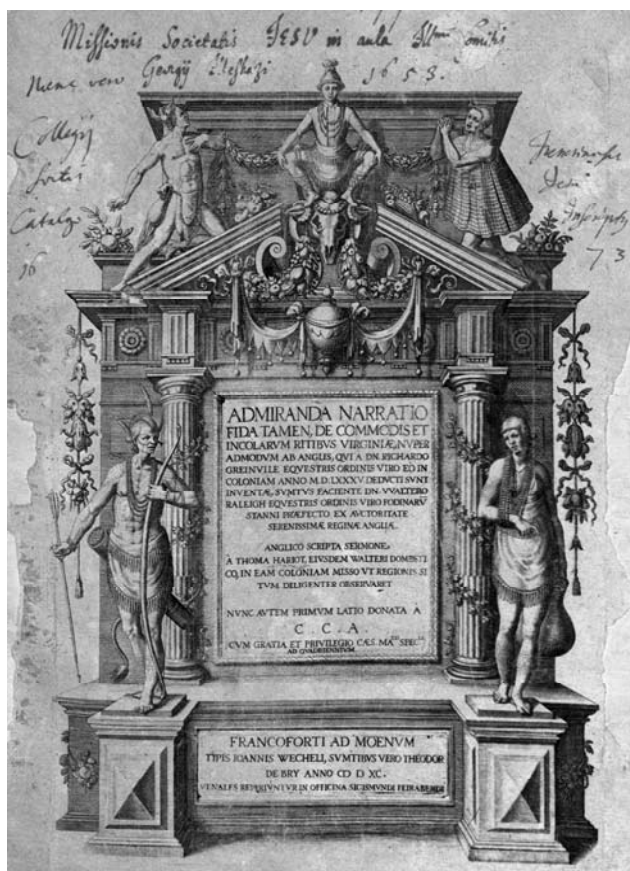 Missionis Societatis JESU in aula Illmi Comitis
Georgij 1653.
Collegij
Catalgo
Inscriptus
16
73
ADMIRANDA NARRATIO
FIDA TAMEN, DE COMMODIS ET
INCOLARVM RITIBVS VIRGINIÆ, NVPER
ADMODVM AB ANGLIS, QVI A DN. RICHARDO
GREINVILE EQVESTRIS ORDINIS VIRO EO IN
COLONIAM ANNO M.D.LXXXV DEDVCTI SVNT
INVENTÆ, SVMTVS FACIENTE DN. VVALTERO
RALEIGH EQVESTRIS ORDINIS VIRO FODINARV̄
STANNI PRÆFECTO EX AVCTORITATE
SERENISSIMÆ REGINÆ ANGLIÆ.
ANGLICO SCRIPTA SERMONE,
À THOMA HARIOT, EIVSDEM WALTERI DOMESTI
CO, IN EAM COLONIAM MISSO VT REGIONIS SI
TVM DILIGENTER OBSERVARET
NVNC AVTEM PRIMVM LATIO DONATA À
C. C. A.
CVM GRATIA ET PRIVILEGIO CÆS. MATIS SPECLI
AD QVADRIENNIVM.
FRANCOFORTI AD MOENVM
TIPIS IOANNIS WECHELI, SVMTIBVS VERO THEODOR
DE BRY ANNO CIↃ D XC.
VENALES REPERIVNTVR IN OFFICINA SIGISMVNDI FEIRABENDI